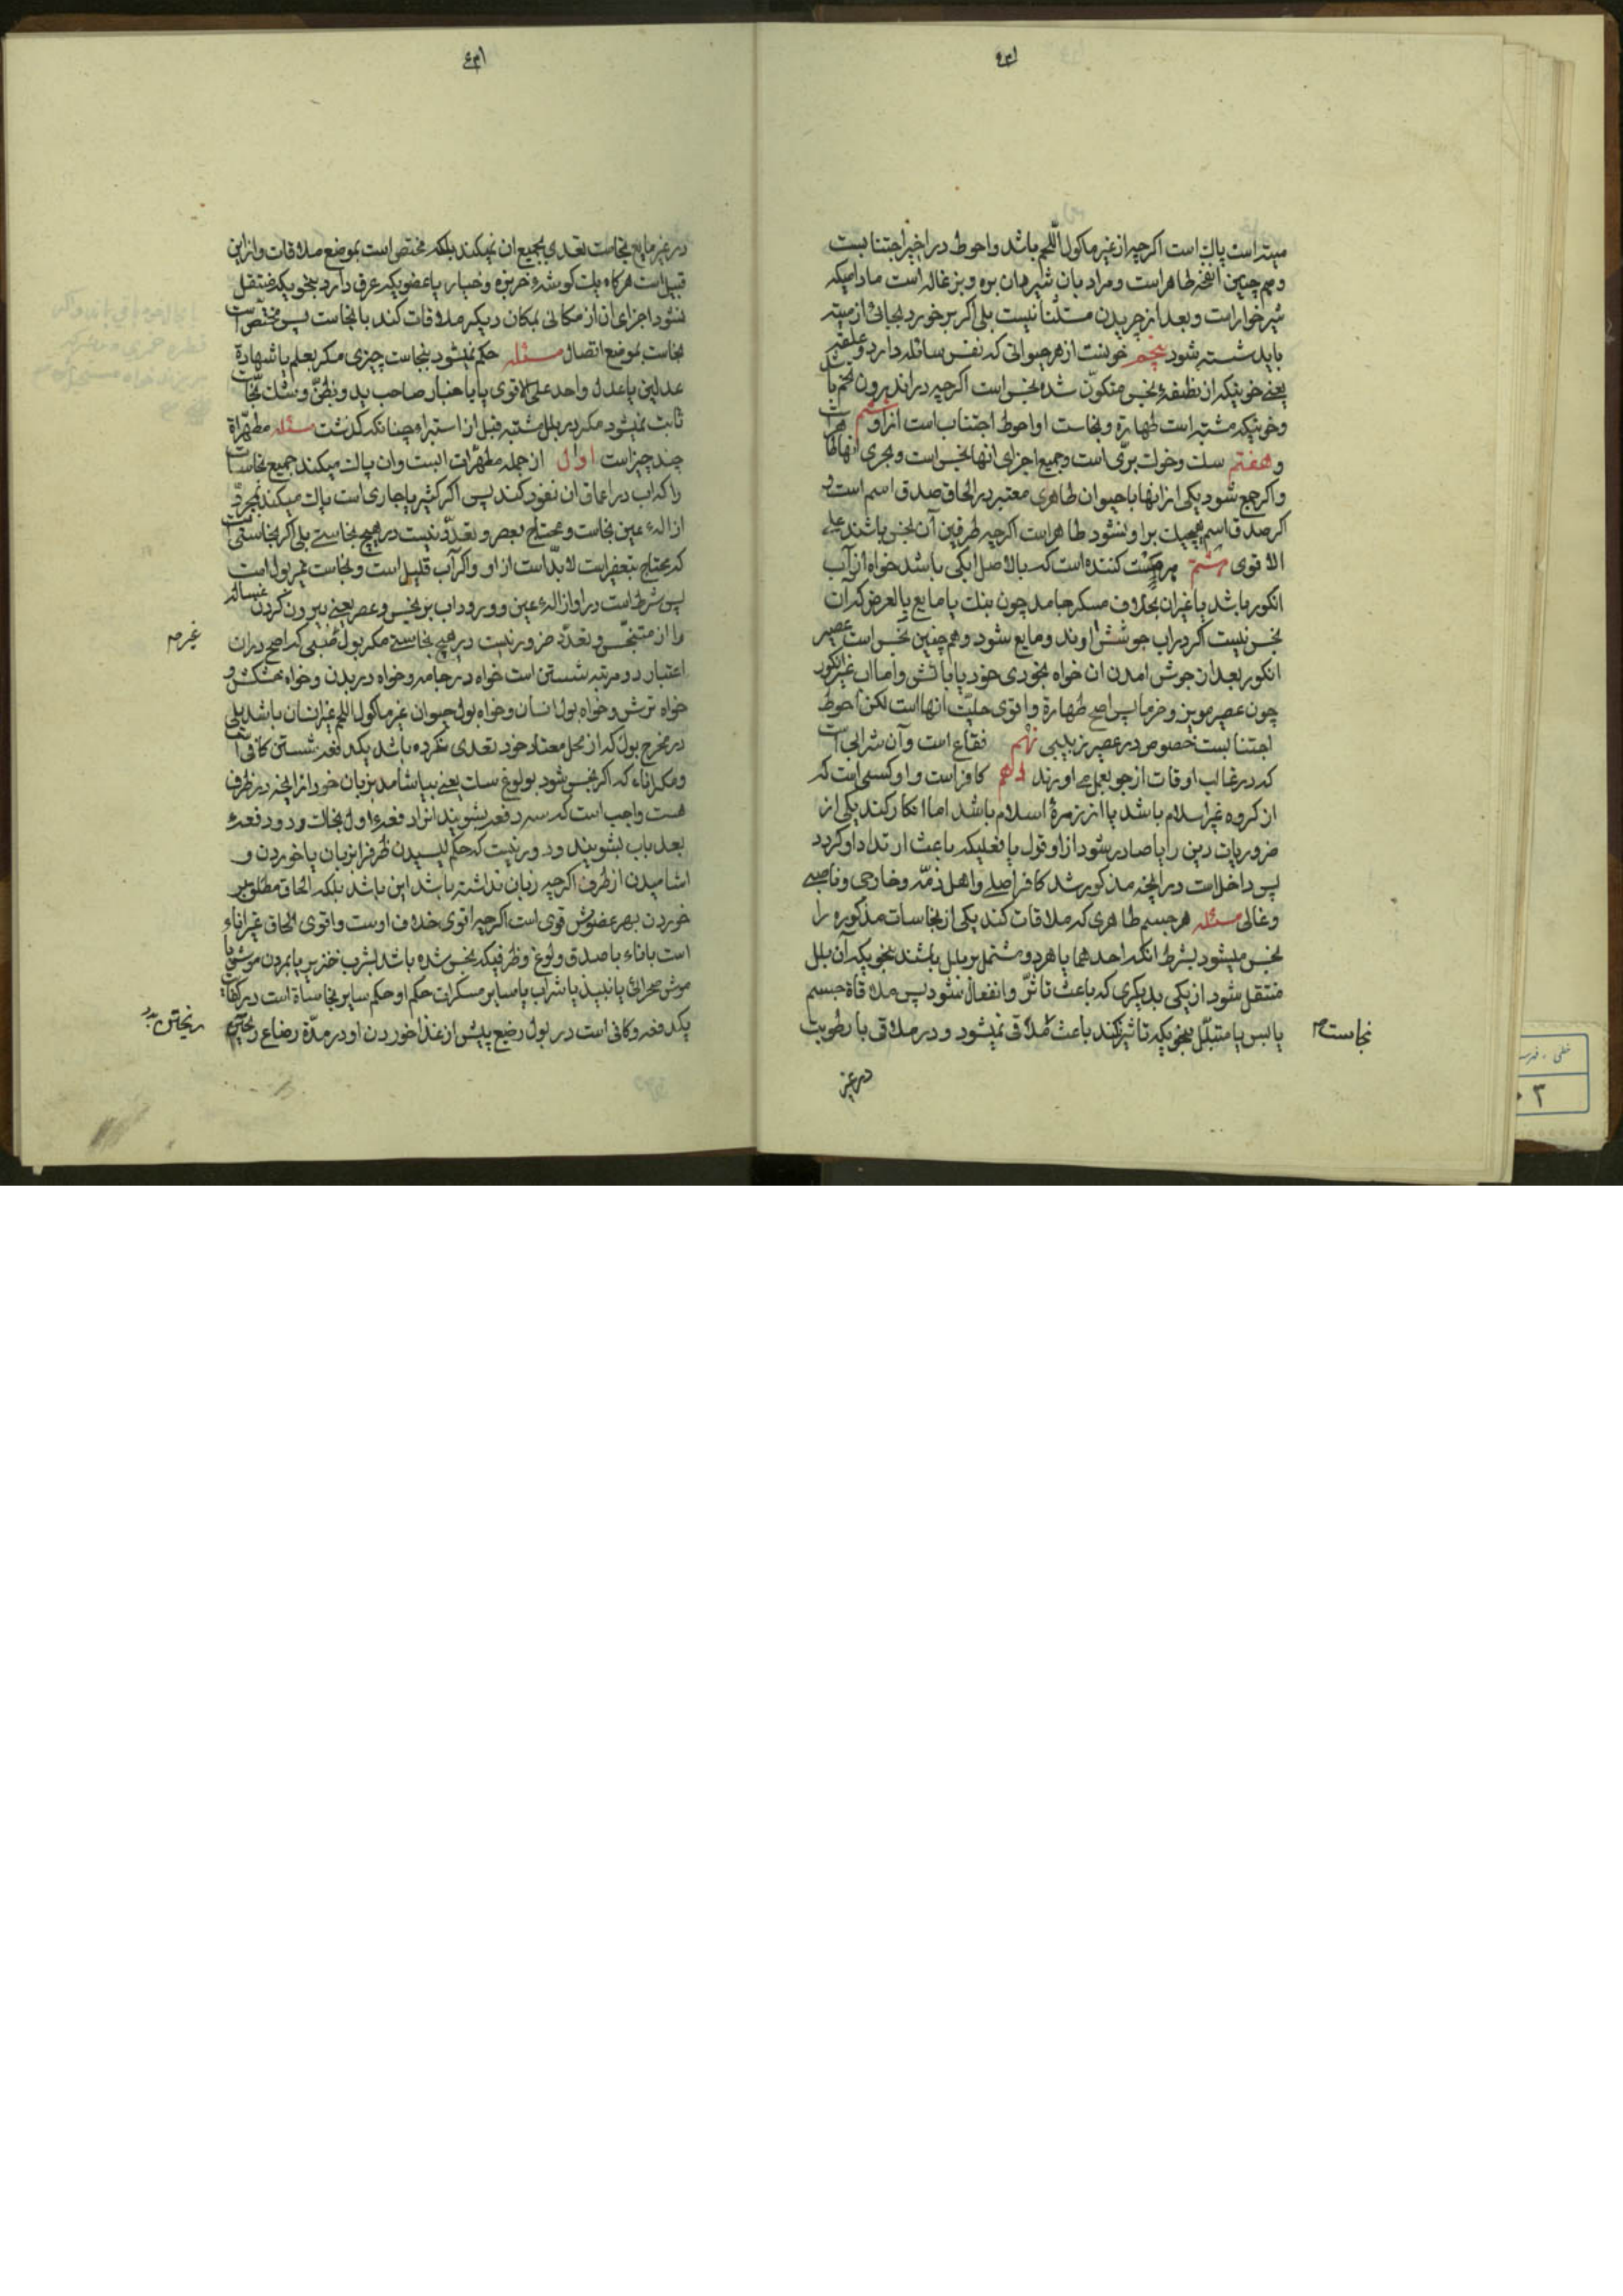 میته است پاک است اگرچه از غیر ماکول اللحم باشد و احوط در اخیر اجتنابست
و هم چنین انفخه طاهر است و مراد بان شیردان بره و بزغاله است مادامیکه
شیرخوار است و بعد از چریدن مستثنا نیست بلی اگر بر خورد بجائی از میته
باید شسته شود پنجم خونست از هر حیوانی که نفس سائله دارد و علقه
یعنی خونیکه از نطفه نجس متکون شده نجس است اگرچه در اندرون تخم باشد
و خونیکه مشتبه است طهارة و نجاست او احوط اجتناب است از او ششم
و هفتم سک و خوک برّی است و جمیع اجزای انها نجس است و بحری انها طاهر است
و اکر جمع شود یکی از انها با حیوان طاهری معتبر در الحاق صدق اسم است و
اکر صدق اسم هیچیک بر او نشود طاهر است اکرچه طرفین آن نجس باشند علی
الاقوی هشتم هر مست کننده است که بالاصل ابکی باشد خواه از آب
انکور باشد یا غیر ان بخلاف مسکر جامد چون بنک یا مایع بالعرض که آن
نجس نیست اکر در اب جوشش اوند و مایع شود و هم چنین نجس است عصیر
انکور بعد از جوش امدن ان خواه بخودی خود یا باتش و اما اب غیر انکور
چون عصیر مویز و خرما پس اصح طهارة و اقوی حلیّت انها است لکن احوط
اجتنابست خصوص در عصیر زبیبی نهم فقاع است و آن شرابی است
که در غالب اوقات از جو بعمل می اورند دهم کافر است و او کسی است که
از کروه غیر اسلام باشد یا از زمرهٔ اسلام باشد اما انکار کند یکی از
ضروریات دین را یا صادر شود از او قول یا فعلیکه باعث ارتداد او کردد
پس داخل است در انچه مذکور شد کافر اصلی و اهل ذمّه و خارجی و ناصبی
و غالی مسئله هر جسم طاهری که ملاقات کند یکی از نجاسات مذکوره را
نجس میشود بشرط انکه احدهما یا هر دو مشتمل بر بلل باشند بنحویکه آن بلل
منتقل شود از یکی بدیکری که باعث تاثّر و انفعال شود پس ملاقاة جسم
یابس یا متبلّل بنحویکه تاثیر نکند باعث ملاقی نمیشود و در ملاقی با رطوبت
نجاست
در غیر
در غیر مایع نجاست تعدی بجمیع ان نمیکند بلکه مختص است بموضع ملاقات و از این
قبیل است هرکاه یک کوشهٔ خربزه و خیار یا عضویکه عرق دارد بنحویکه منتقل
نشود اجزای ان از مکانی بمکان دیکر ملاقات کند با نجاست پس مختص است
نجاست بموضع اتصال مسئله حکم نمیشود بنجاست چیزی مکر بعلم یا شهادة
عدلین یا عدل واحد علی الاقوی یا باخبار صاحب ید و بظنّ و شک نجاست
ثابت نمیشود مکر در بلل مشتبه قبل از استبراء چنانکه کذشت مسئله مطهّراة
چند چیز است اول از جمله مطهّرات ابست و ان پاک میکند جمیع نجاسات
را که اب در اعماق ان نفوذ کند پس اکر کثیر یا جاری است پاک میکند بمجرّد
ازالهٔ عین نجاست و محتاج بعصر و تعدّد نیست در هیچ نجاستی بلی اکر نجاستی است
که محتاج بتعفیر است لا بدّ است از او و اکر آب قلیل است و نجاست غیر بول است
پس شرط است در او ازالهٔ عین و ورود اب بر نجس و عصر یعنی بیرون کردن غساله
را از متنجّس و تعدّد ضرور نیست در هیچ نجاستی مکر بول صبی که اصح در ان
غیر
اعتبار دو مرتبه شستن است خواه در جامه و خواه در بدن و خواه خشکش و
خواه ترش و خواه بول انسان و خواه بول حیوان غیر ماکول اللحم غیر انسان باشد بلی
در مخرج بول که از محل معتاد خود تعدی نکرده باشد یکدفعه شستن کافی است
و مکر اناء که اکر نجس شود بولوغ سک یعنی بیاشامد بزبان خود از انچه در ظرف
هست واجب است که سه دفعه بشویند انرا دفعهٔ اول بخاک و دو دفعهٔ
بعد باب بشویند و دور نیست که حکم لیسیدن ظرف را بزبان یا خوردن و
اشامیدن از ظرف اکرچه زبان نداشته باشد این باشد بلکه الحاق مطلق
خوردن بهر عضوش قوی است اکرچه اقوی خلاف اوست و اقوی الحاق غیر اناء
است باناء با صدق ولوغ و ظرفیکه نجس شده باشد بشرب خنزیر یا بمردن موش یا
موش صحرائی یا نبیذ یا شراب یا سایر مسکرات حکم او حکم سایر نجاساة است در کفایت
یکدفعه و کافی است در بول رضیع پیش از غذا خوردن او در مدّة رضاع ریختن
ریختن